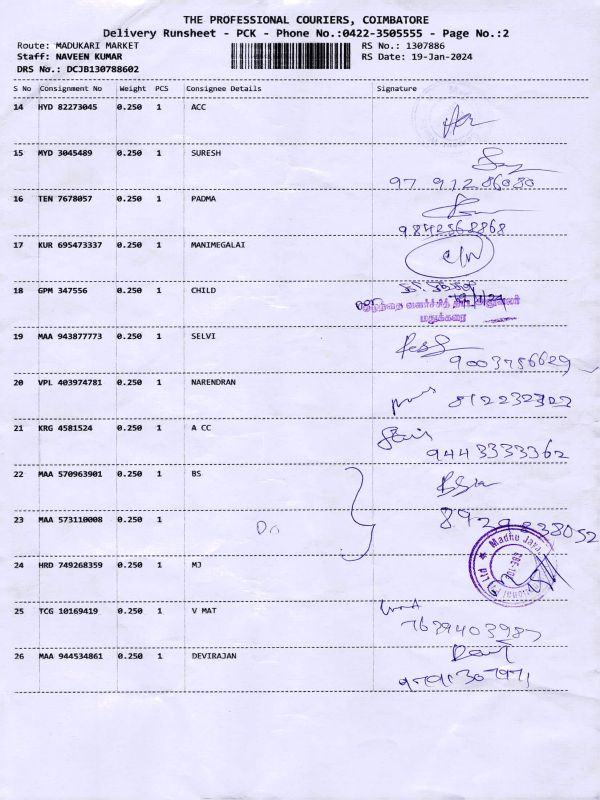 THE PROFESSIONAL COURIERS, COIMBATORE
Delivery Runsheet - PCK - Phone No.:0422-3505555 - Page No.:2
Route: MADUKARI MARKET RS No.: 1307886
Staff: NAVEEN KUMAR RS Date: 19-Jan-2024
DRS No.: DCJB130788602
S No Consignment No Weight PCS Consignee Details Signature
14 HYD 82273045 0.250 1 ACC
15 MYD 3045489 0.250 1 SURESH
97 91286080
16 TEN 7678057 0.250 1 PADMA
9842562868
17 KUR 695473337 0.250 1 MANIMEGALAI
18 GPM 347556 0.250 1 CHILD
குழந்தை வளர்ச்சித் திட்ட அலுவலர்
மதுக்கரை
19 MAA 943877773 0.250 1 SELVI
9003756629
20 VPL 403974781 0.250 1 NARENDRAN
812232322
21 KRG 4581524 0.250 1 A CC
9443333362
22 MAA 570963901 0.250 1 BS
23 MAA 573110008 0.250 1
8929838052
24 HRD 749268359 0.250 1 MJ
Madhu Jaya
25 TCG 10169419 0.250 1 V MAT
7639403987
26 MAA 944534861 0.250 1 DEVIRAJAN
9791307971